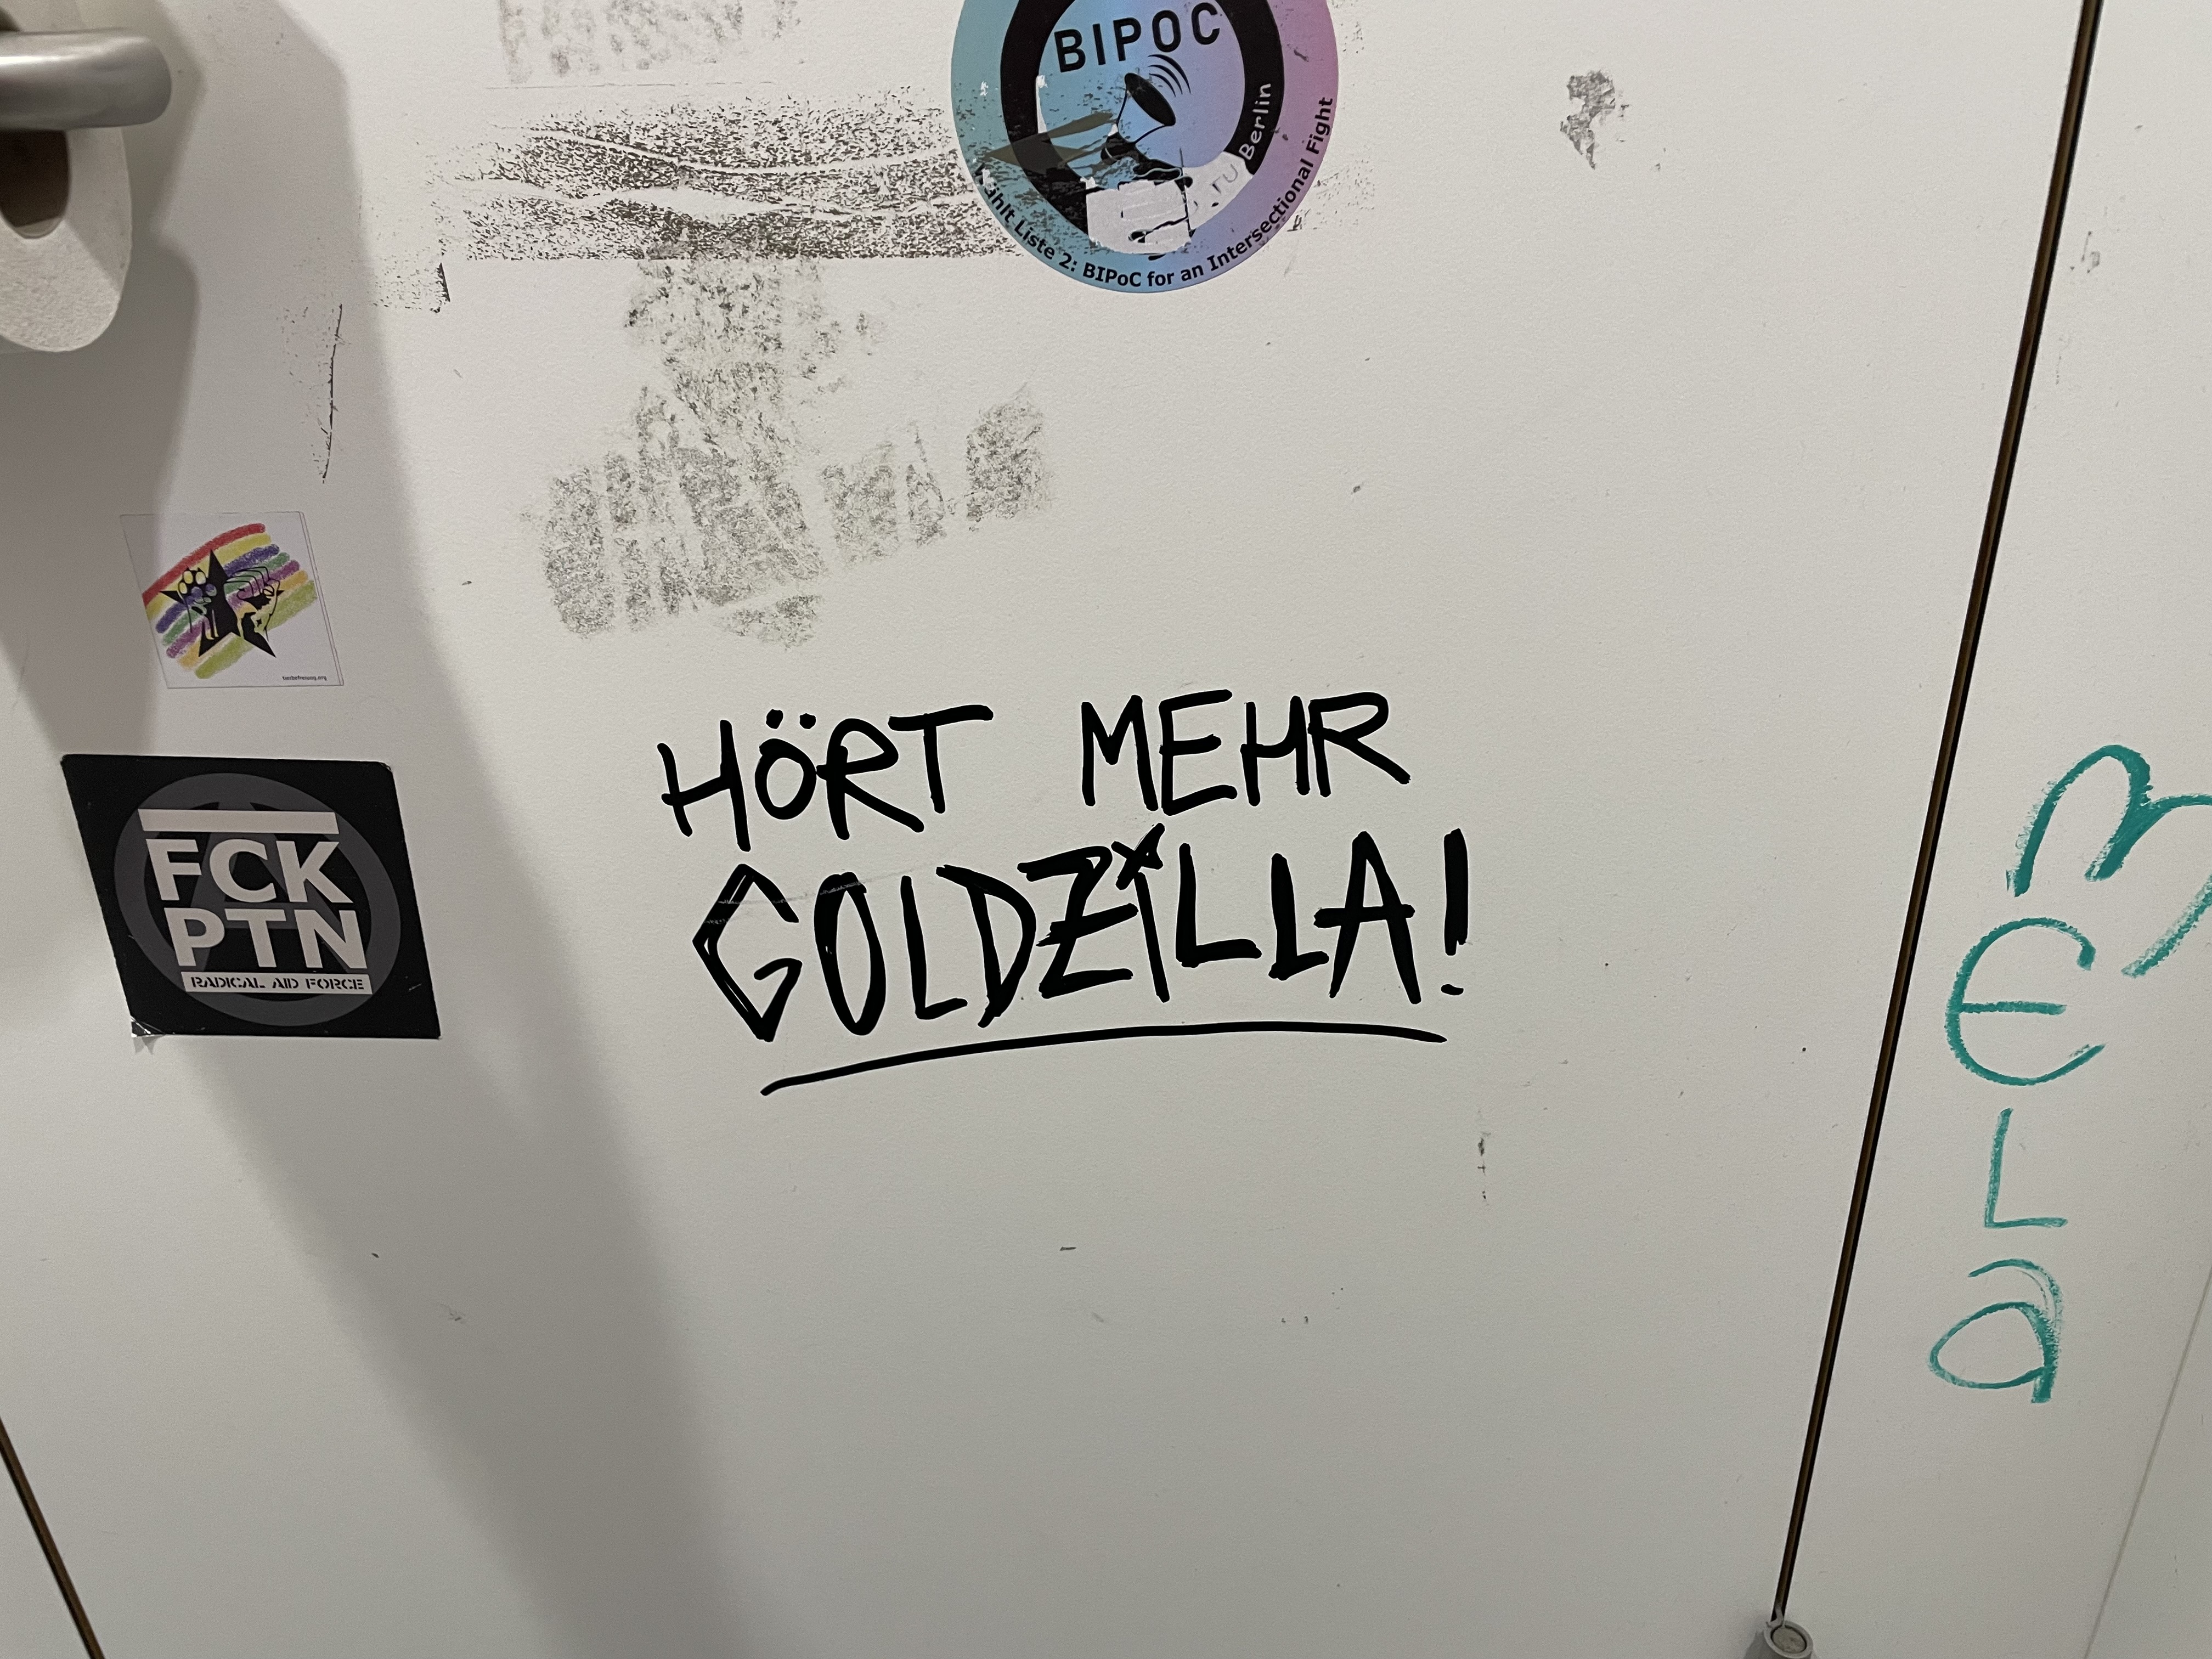 BIPOC
Berlin
ählt Liste 2: BIPoC for an Intersectional Fight
tierbefreiung.org
FCK
PTN
RADICAL AID FORCE
HÖRT MEHR
GOLDZiLLA!
MELa